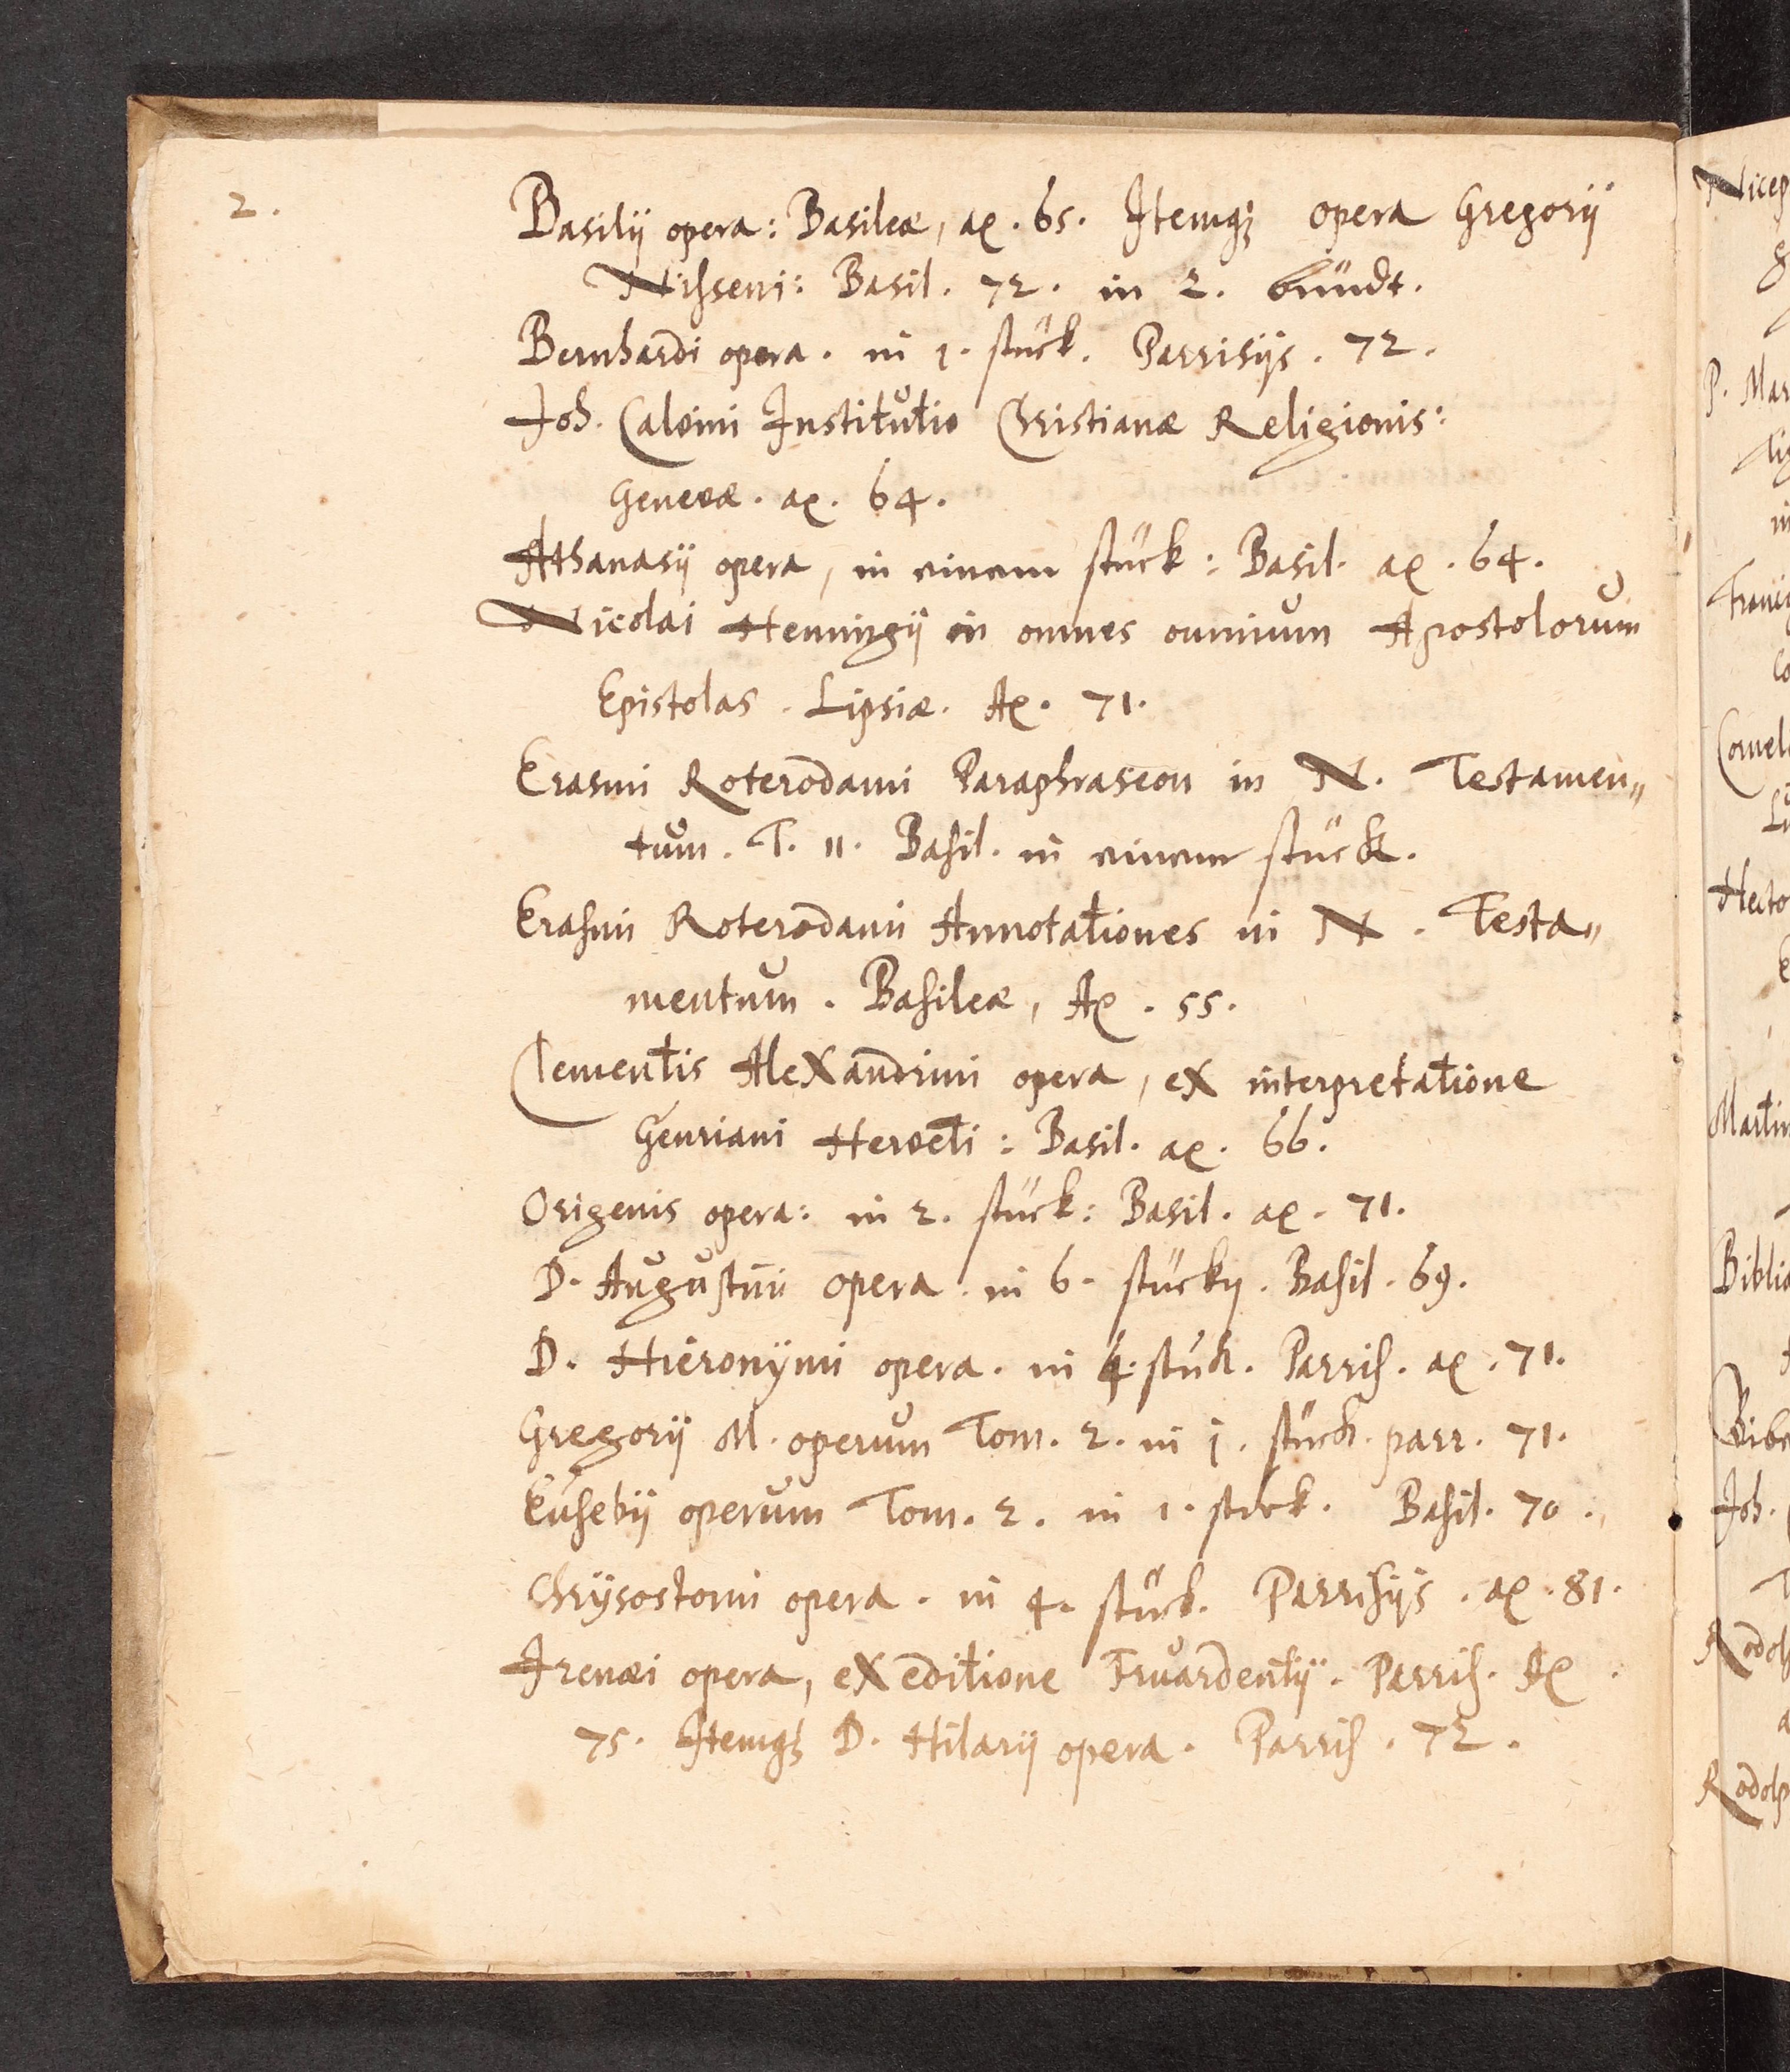 2.
Basilij opera: Basileæ, aō. 65. Itemq; opera Gregorij
Nisseni: Basil. 72. in 2. bündt.
Bernhardi opera. in 1. stück. Parrisijs. 72.
Joh. Calvini Institutio Christianæ Religionis:
Genevæ. aō. 64.
Athanasij opera, in einem stück: Basil. aō. 64.
Nicolai Hemingij in omnes omnium Apostolorum
Epistolas. Lipsiæ. Aō. 71.
Erasmi Roterodami Paraphraseon in N. Testamen„
tum. T. 11. Basil. in einem stück.
Erasmi Roterodami Annotationes in N. Testa„
mentum. Basileæ, Aō. 55.
Clementis Alexandrini opera, ex interpretatione
Genriani Herveti: Basil. aō. 66.
Origenis opera: in 2. stück: Basil. aō. 71.
D. Augustini opera. in 6. stücky. Basil. 69.
D. Hieronÿmi opera. in 4. stück. Parris. aō. 71.
Gregorij M. operum Tom. 2. in 1. stück. parr. 71.
Eusebij operum Tom. 2. in 1. stück. Basil. 70.
Chrÿsostomi opera. in 4. stück. Parrisijs. aō. 81.
Irenæi opera, ex editione Fruardentij. Parris. Aō.
75. Itemq; D. Hilarij opera. Parris. 72.
Nicep
P. Mar
Hecto
Martin
Biblia
Joh.
Rodolp
Rodolp